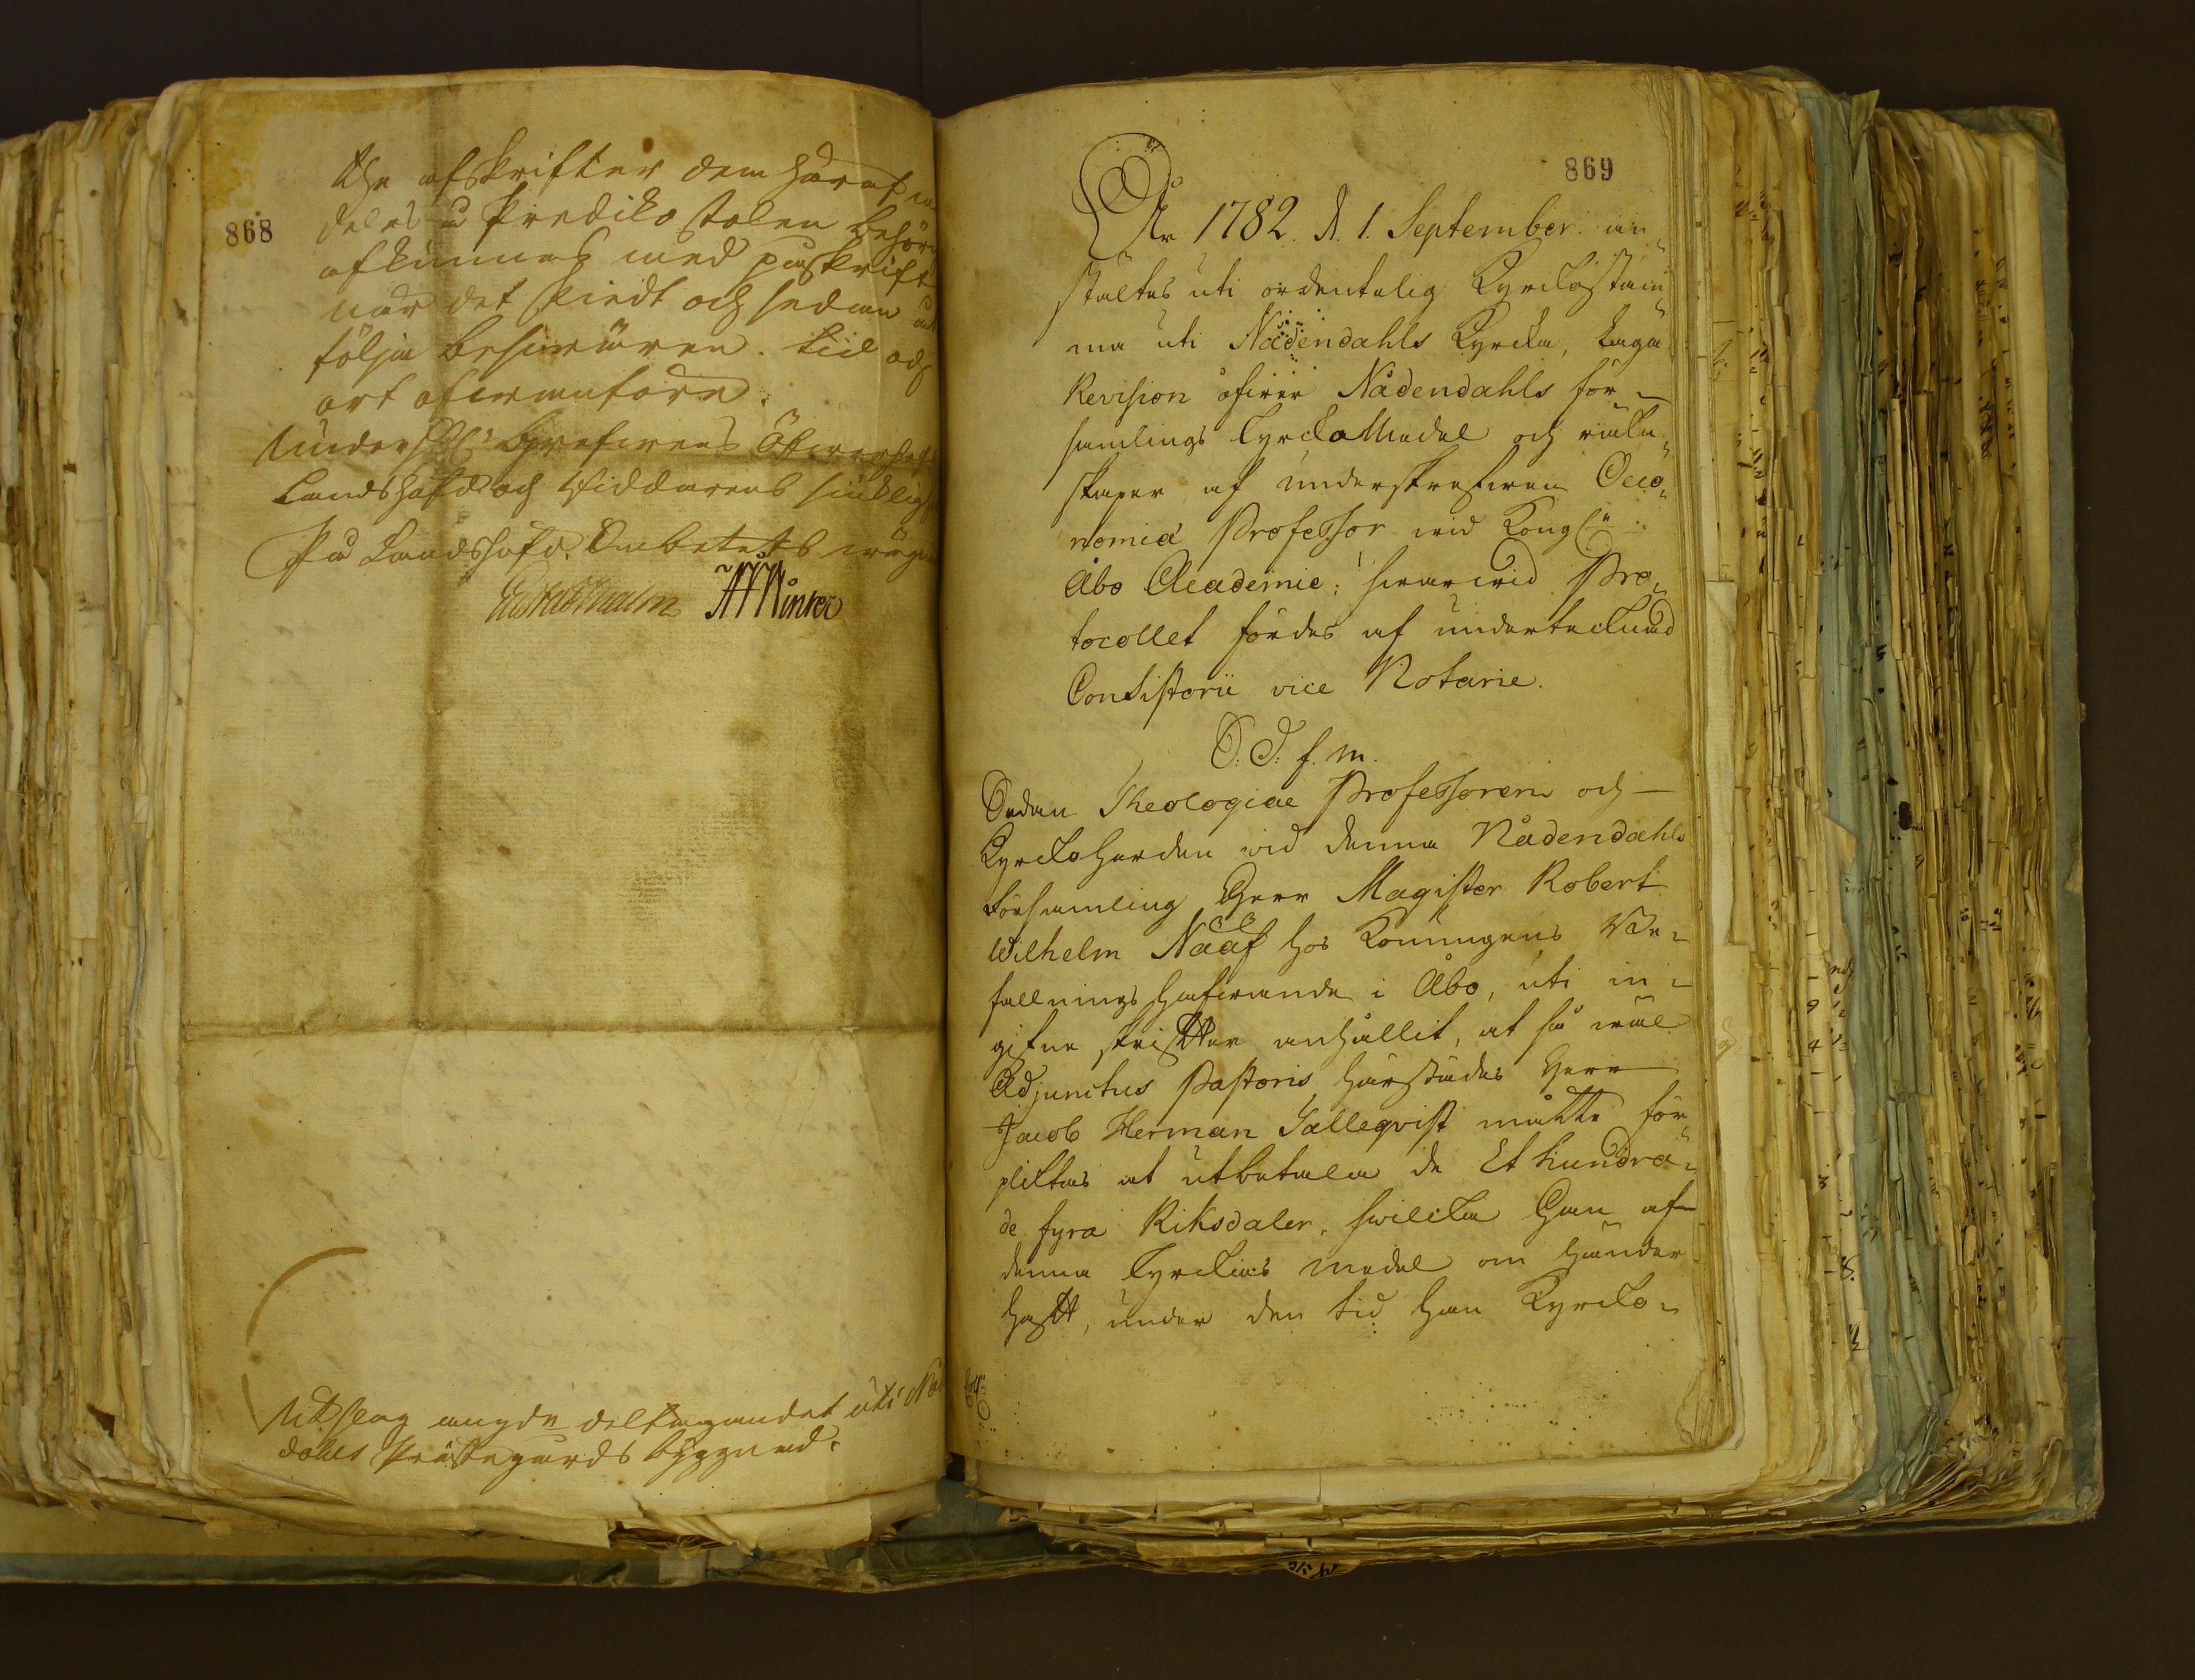 868
the afskrifter dem häraf
delas å Predikostolen behör
afkunnas med påskrift
när det skiedt och sedan åt
följa besvären. Tiid och
ort ofvanuforde.
Landshöfd och Riddarens
På Landshöfd. Embetets wägnar
Utslag angde deltagandet uti Nåd
dahls Prästegårds byggnad.
869
År 1782. d. 1. September. an¬
staltes uti ordentelig Kyrckostäm¬
ma uti Nådendahls Kyrcka, Laga
Revision öfwer Nådendahls för¬
samlings KyrckoMedel och räken¬
skaper af underskrefwen Oeco¬
nomiæ Professor wid Kongl.
Åbo Academie: hwarwid Pro¬
tocollet fördes af undertecknad
Consistorii vice Notarie.
S. D. f. m.
Sedan Theologiae Professoren och
Kyrckoherden wid denna Nådendahls
Församling Herr Magister Robert
Wilhelm Nääf hos Konungens Be¬
fallningshafwande i Åbo, uti in¬
gifne skrifter anhållit, at så wäl
Adjunctus Pastoris härstädes Herr
Jacob Herman Salleqvist måtte för¬
pliktas at utbetala de Ethundra¬
de fyra Riksdaler, hwilcka Han af
denna Kyrckias medel om händer
haft, under den tid han Kyrcko¬